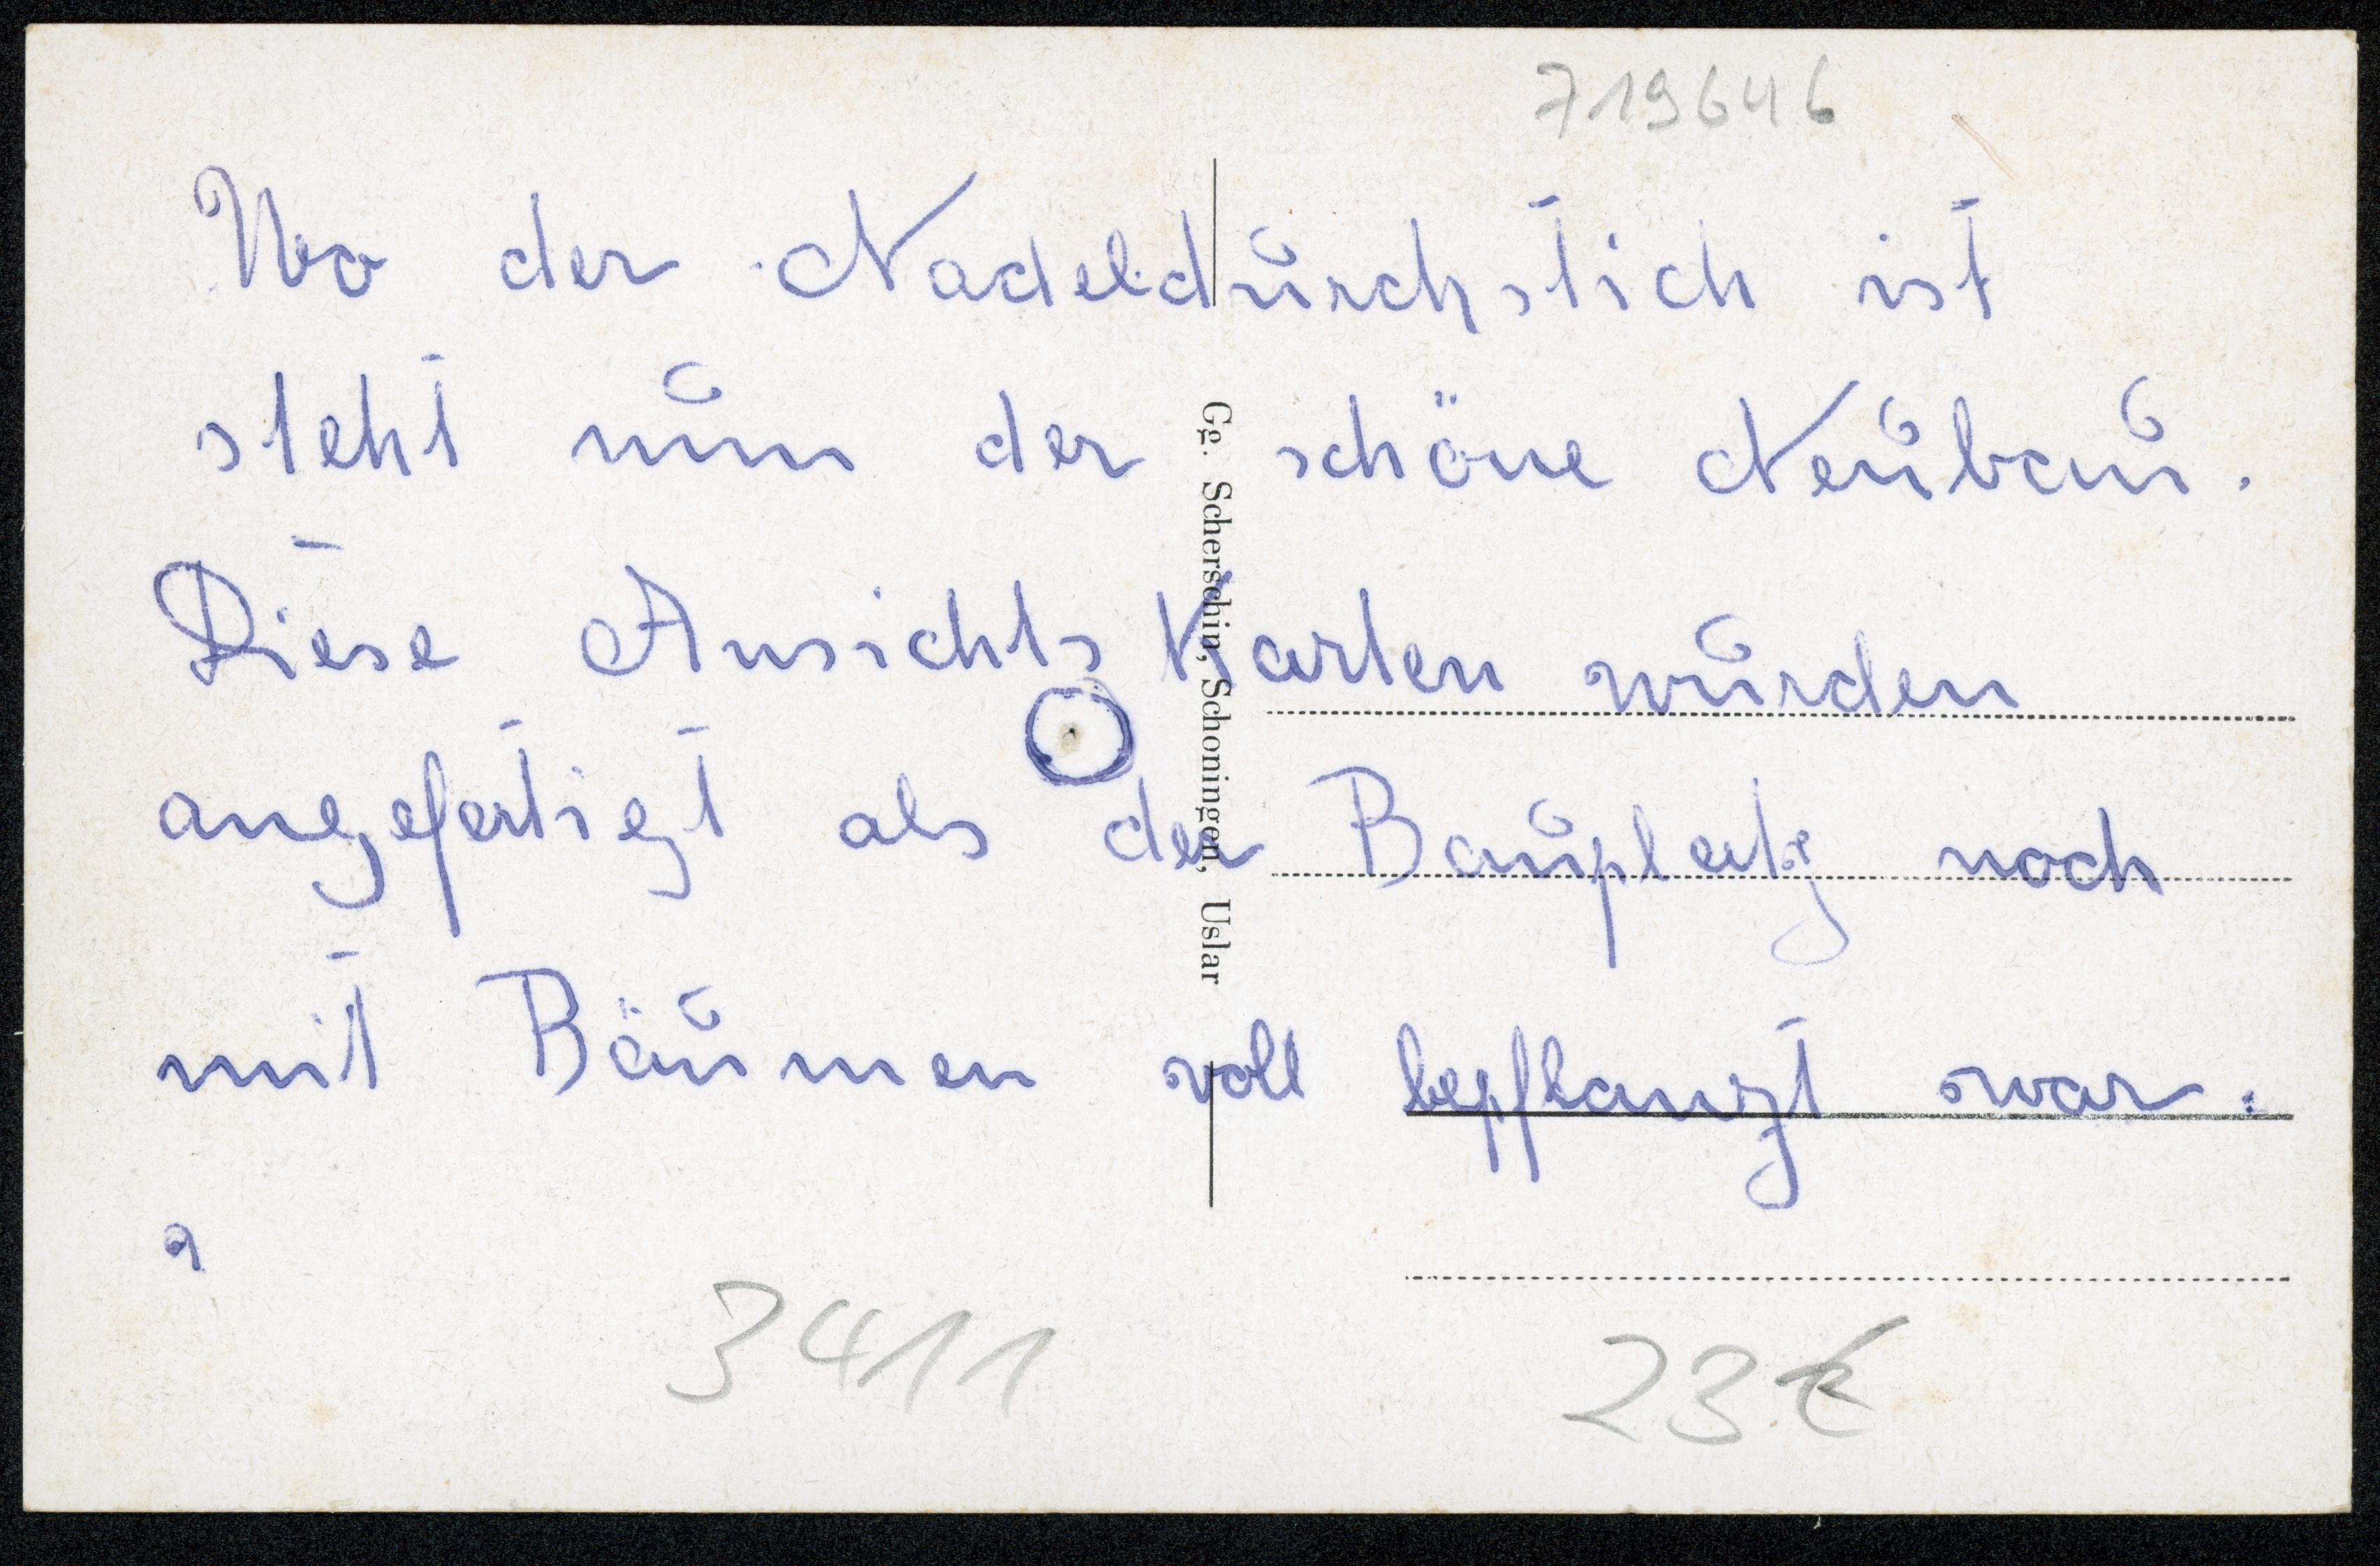 719646
Wo der Nadeldurchstich ist
steht nun der schöne Neubau.
Diese Ansichts Karten wurden
angefertigt als der Bauplatz noch
mit Bäumen voll bepflanzt war.
Gg. Scherschin, Schoningen, Uslar
3411
23 €